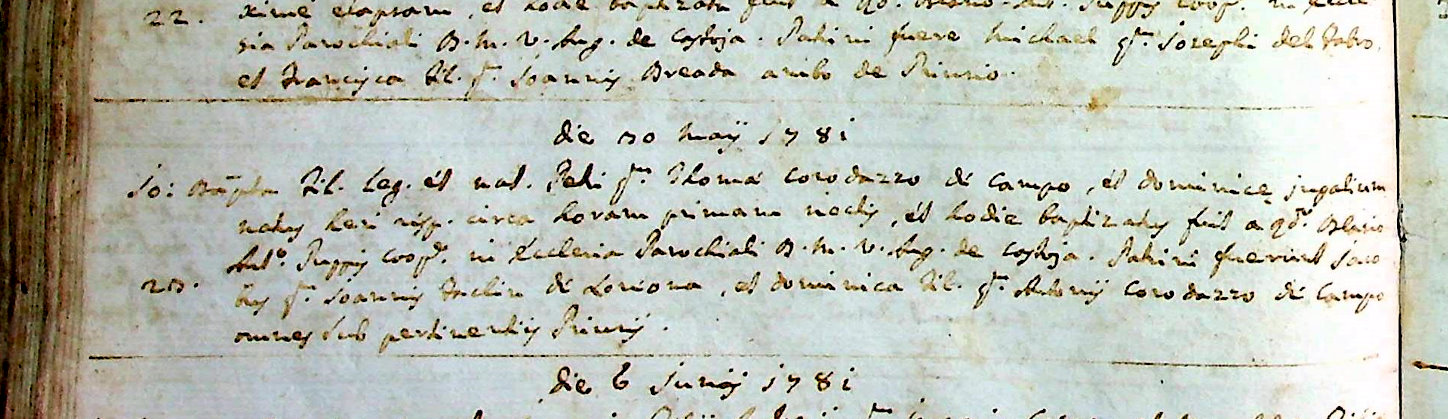 22. ximè elapsam, et hodie baptizata fuit a
sia Parochiali B. M. V. Aug. de Costoja. Patrini fuere Michael qm. Josephi del Fabro,
et Francisca fil. qm. Joannis Breada ambo de Rinsio.
die 30 Maij 1781
Jo: Bapta fil. leg. et nat. Petri qm. Thomæ Corodazzo di Campo, et Dominicę jugalium
natus heri circa horam primam noctis, et hodie baptizatus fuit a Blasio
Anto. Puppis Coopre. in Ecclesia Parochiali B. M. V. Aug. de Costoja. Patrini fuerunt Jaco
23. bus qm. Joannis di Lorona, et Dominica fil. qm. Antonij Corodazzo di Campo
omnes sub pertinentijs
die 6 Junij 1781